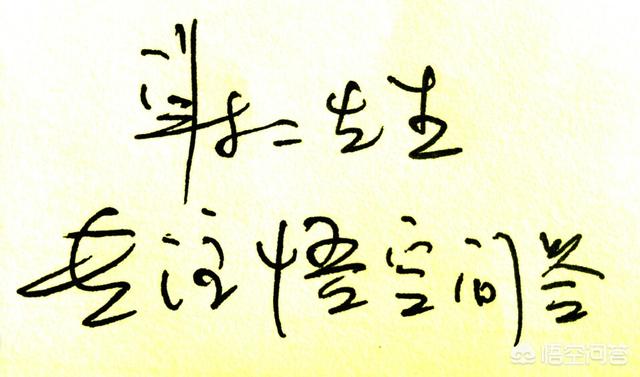 仁先生
专注悟空问答
悟空问答